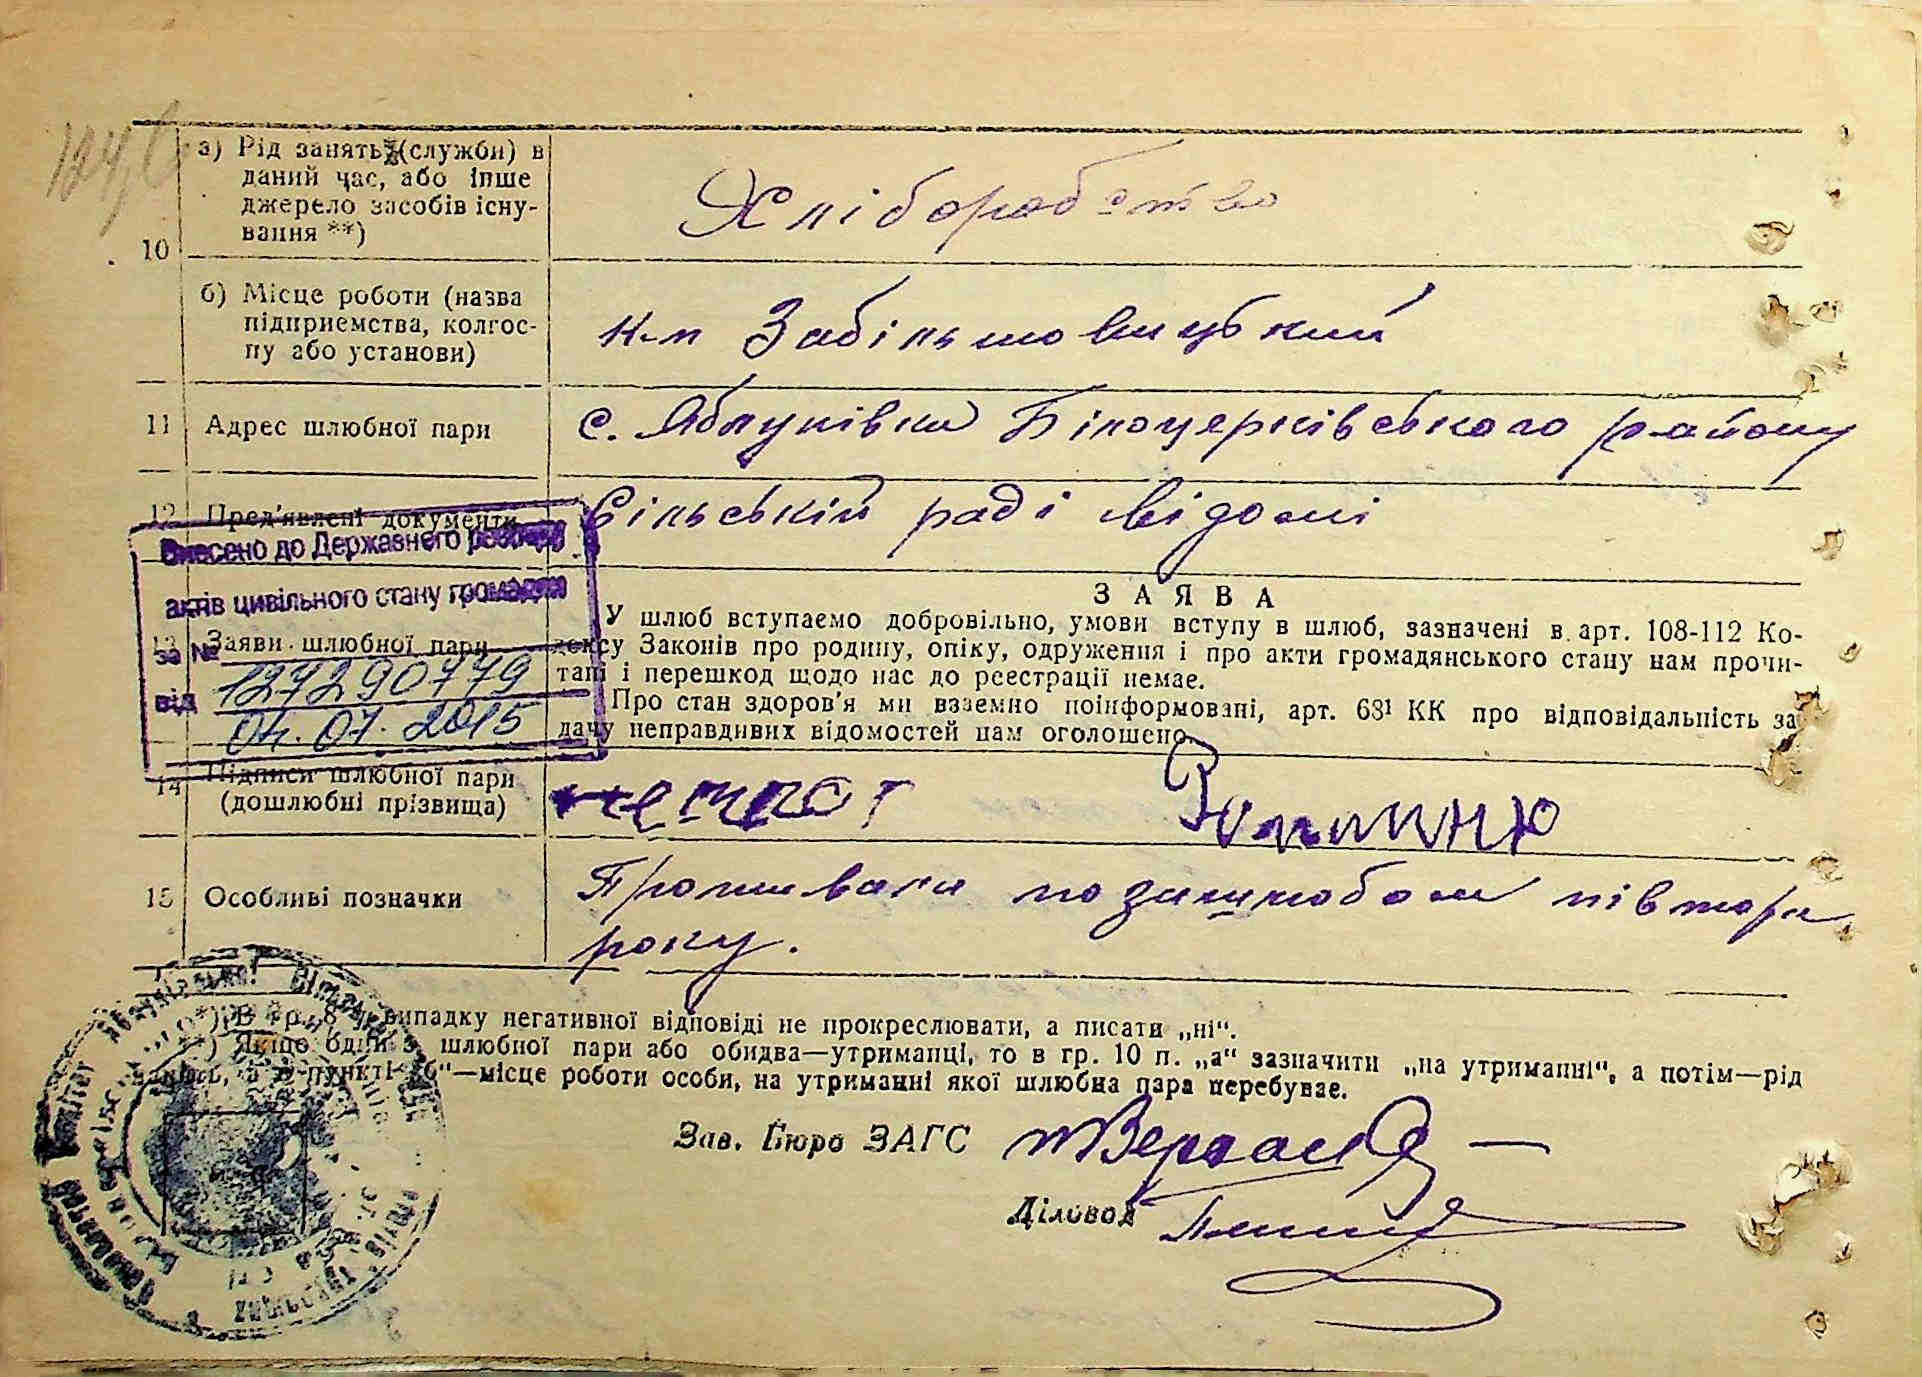 а) Рід занять (служби) в
даний час, або інше
джерело засобів існу-
вання **)
Хліборобство
10
б) Місце роботи (назва
підприємства, колгос-
пу або установи)
к-п Забільшовицький
11 Адрес шлюбної пари
с. Яблуківка Білоцерківського району
12 Пред'явлені документи
Сільській раді відомі
Внесено до Державного реєстру
актів цивільного стану громадян
за № 127290779
від 04.07.2015
13 Заяви шлюбної пари
ЗАЯВА
У шлюб вступаємо добровільно, умови вступу в шлюб, зазначені в арт. 108-112 Ко-
дексу Законів про родину, опіку, одруження і про акти громадянського стану нам прочи-
тані і перешкод щодо нас до реєстрації немає.
Про стан здоров'я ми взаємно поінформовані, арт. 68¹ КК про відповідальність за
дачу неправдивих відомостей нам оголошено.
14 Підписи шлюбної пари
(дошлюбні прізвища)
15 Особливі позначки
Проживали поза шлюбом півтора
року.
*) В гр. 8 у випадку негативної відповіді не прокреслювати, а писати „ні“.
**) Якщо один з шлюбної пари або обидва—утриманці, то в гр. 10 п. „а“ зазначити „на утриманні“, а потім—рід
занять, а в пункті „б“—місце роботи особи, на утриманні якої шлюбна пара перебуває.
Зав. Бюро ЗАГС
Діловод